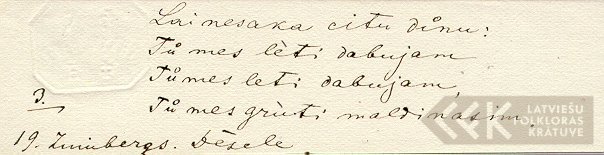 Lai nesaka citu důnu:
Tů mes lèti dabujam
Tů mes leti dabujam,
3. Tů mes grùti maldinasim
19. Zunubergs. Dēsele
LATVIEŠU
FOLKLORAS
KRĀTUVE